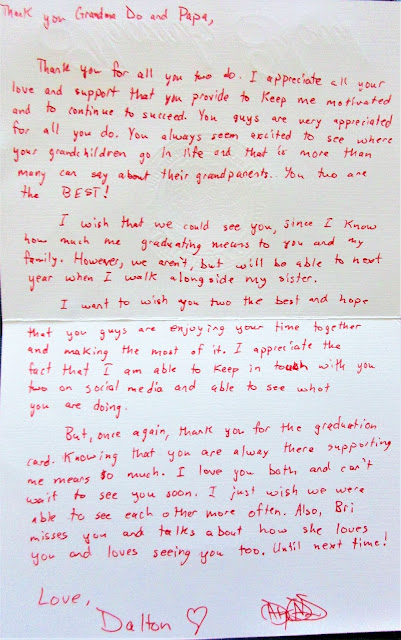 Thank you Grandma Do and Papa,
Thank you for all you two do. I appreciate all your
love and support that you provide to keep me motivated
and to continue to succeed. You guys are very appreciated
for all you do. You always seem excited to see where
your grandchildren go in life and that is more than
many can say about their grandparents. You two are
the BEST!
I wish that we could see you, since I know
how much me graduating means to you and my
family. However, we aren't, but will be able to next
year when I walk alongside my sister.
I want to wish you two the best and hope
that you guys are enjoying your time together
and making the most of it. I appreciate the
fact that I am able to keep in touch with you
two on social media and able to see what
you are doing.
But, once again, thank you for the graduation
card. Knowing that you are alway there supporting
me means so much. I love you both and can't
wait to see you soon. I just wish we were
able to see each other more often. Also, Bri
misses you and talks about how she loves
you and loves seeing you too. Until next time!
Love,
Dalton ♡